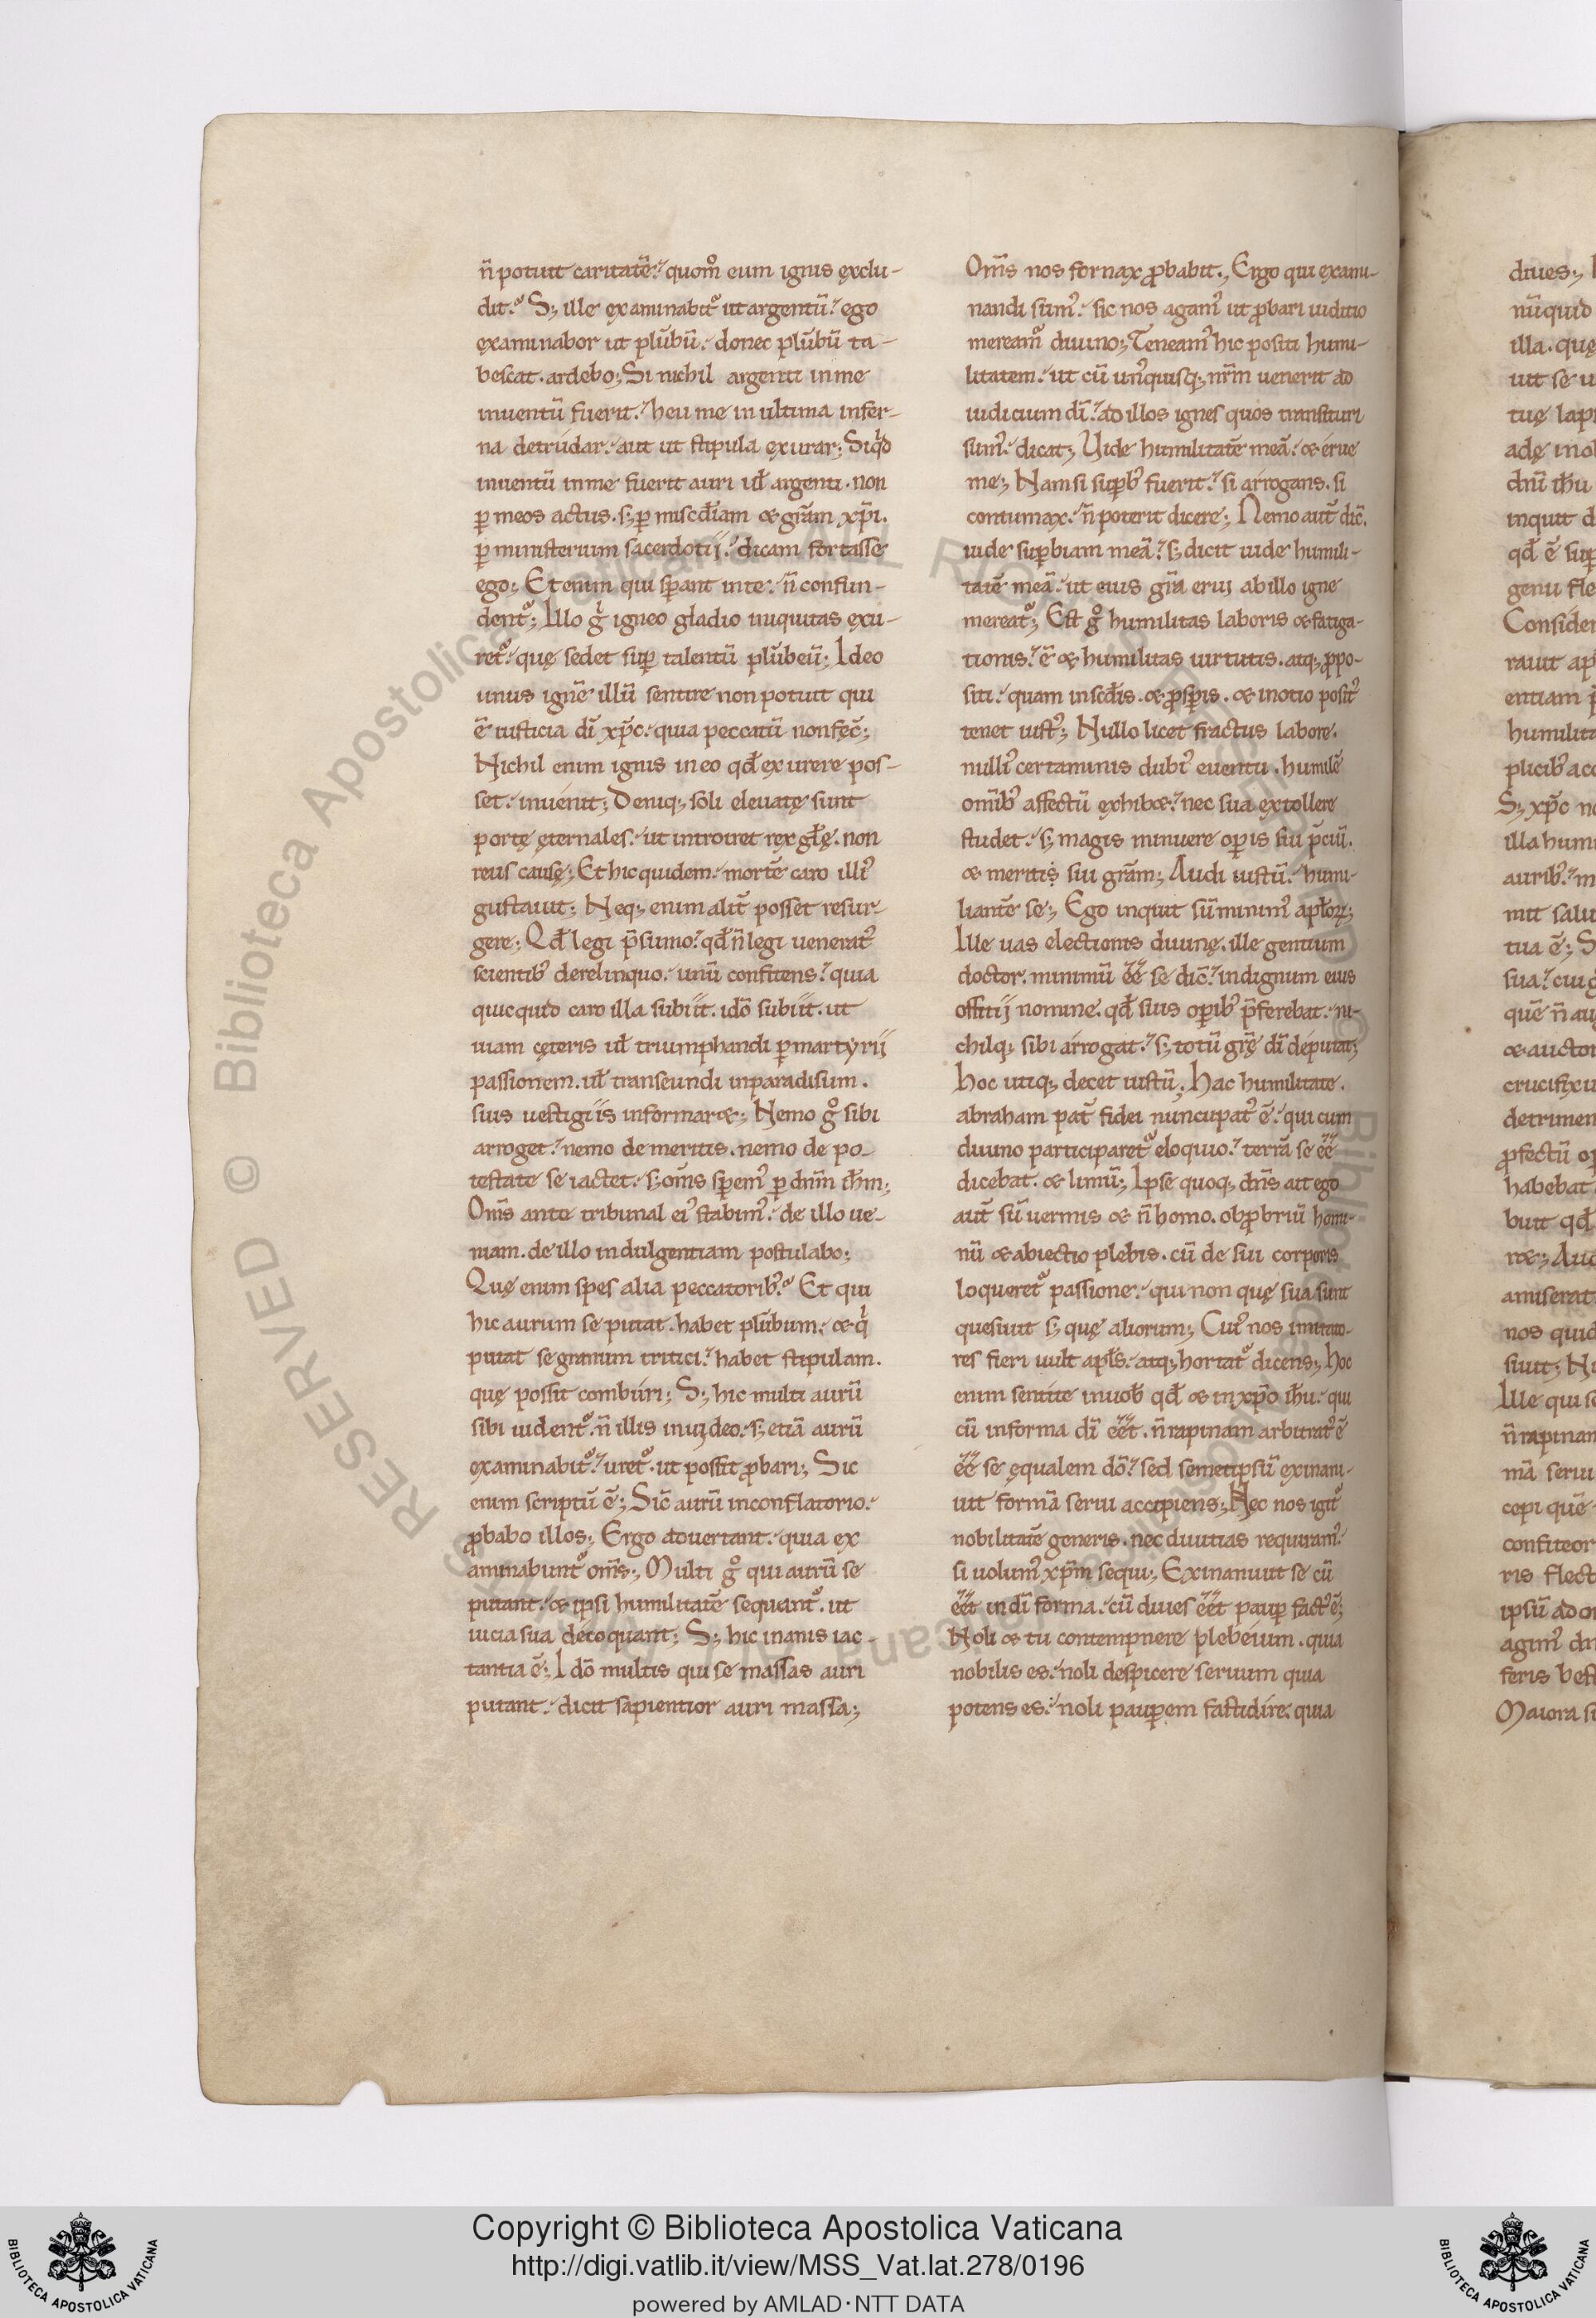 n̄ potuit caritatē? quom̊ eum ignis exclu-
dit? S; ille examinabit᷑ ut argentū? ego
examinabor ut plūbū. donec plūbū ta-
bescat. ardebo; Si nichil argenti in me
inuentū fuerit? heu me in ultima infer-
na detrudar. aut ut stipula exurar; Siqͥd
inuentū in me fuerit auri uł argenti. non
ꝑ meos actus. s; ꝑ misc̄diam & gr̄am xp̄i.
ꝑ ministerium sacerdotij? dicam fortasse
ego; Etenim qui sꝑant in te. n̄ confun-
dent᷑; Illo gͦ igneo gladio iniquitas exu-
ret᷑? quę sedet suꝑ talentū plūbeū; Ideo
unus ignē illū sentire non potuit qui
ē iusticia dī xp̄c. quia peccatū non fec̄;
Nichil enim ignis in eo qd̄ exurere pos-
set. inuenit; Deniq; soli eleuatę sunt
portę ęternales. ut introiret rex gł̄ę. non
reus causę; Et hic quidem. mortē caro illiꝰ
gustauit; Neq; enim alit̄ posset resur-
gere; Qd̄ legi p̄sumo? qd̄ n̄ legi ueneratꝰ
scientibꝰ derelinquo. unū confitens? quia
quicquid caro illa subiit. idō subiit. ut
uiam cęteris uł triumphandi ꝑ martyrij
passionem. uł transeundi in paradisum.
suis uestigiis informar&; Nemo gͦ sibi
arroget? nemo de meritis. nemo de po-
testate se iactet. s; om̄s sꝑemꝰ ꝑ dnm̄ ih̄m;
Om̄s ante tribunal eiꝰ stabimꝰ. de illo ue-
niam. de illo indulgentiam postulabo;
Quę enim spes alia peccatoribꝰ? Et qui
hic aurum se putat. habet plūbum. & qͥ
putat se granum tritici? habet stipulam.
quę possit comburi; S; hic multi aurū
sibi uident᷑. n̄ illis inuideo. s; etiā aurū
examinabit᷑? uret᷑. ut possit ꝓbari; Sic
enim scriptū ē; Sic̄ aurū in conflatorio.
ꝓbabo illos; Ergo aduertant. quia ex
aminabunt᷑ om̄s; Multi gͦ qui aurū se
putant. & ipsi humilitatē sequant᷑. ut
uicia sua decoquant; S; hic inanis iac-
tantia ē; Idō multis qui se massas auri
putant. dicit sapientior auri massa;
Om̄s nos fornax ꝓbabit; Ergo qui exami-
nandi sumꝰ. sic nos agamꝰ ut ꝓbari iuditio
mereamꝰ diuino; Teneamꝰ hic positi humi-
litatem. ut cū unꝰquisq; nr̄m uenerit ad
iudicium dī? ad illos ignes quos transituri
sumꝰ. dicat; Uide humilitatē meā? & erue
me; Nam si suꝑbꝰ fuerit? si arrogans. si
contumax. n̄ poterit dicere; Nemo aut̄ dic̄.
uide suꝑbiam meā? s; dicit uide humili-
tatē meā. ut eius gr̄a erui ab illo igne
mereat᷑; Est gͦ humilitas laboris & fatiga-
tionis? ē & humilitas uirtutis. atq; ꝓpo-
siti. quam in sc̄dis. & ꝓsꝑis. & in otio positꝰ
tenet iustꝰ; Nullo licet fractus labore.
nulliꝰ certaminis dubiꝰ euentu. humilē
omībꝰ affectū exhib&? nec sua extollere
studet. s; magis minuere oꝑis sui p̄ciū.
& meritis sui gr̄am; Audi iustū. humi-
liantē se; Ego inquit sū minimꝰ apłoꝝ;
Ille uas electionis diuinę. ille gentium
doctor. minimū ēē se dic̄? indignum eius
offitij nomine. qd̄ suis oꝑibꝰ p̄ferebat. ni-
chilq; sibi arrogat? s; totū grę̄ dī deputat;
Hoc utiq; decet iustū; Hac humilitate.
abraham pat̄ fidei nuncupatꝰ ē? qui cum
diuino participaret᷑ eloquio? terrā se ēē
dicebat. & limū; Ipse quoq; dn̄s ait ego
aut̄ sū uermis & n̄ homo. obꝓbriū homi-
nū & abiectio plebis. cū de sui corporis
loqueret᷑ passione. qui non quę sua sunt
quesiuit s; quę aliorum; Cuiꝰ nos imitato-
res fieri uult apł̄s. atq; hortat᷑ dicens; Hoc
enim sentite in uob̄ qd̄ & in xp̄o ih̄u. qui
cū in forma dī ēēt. n̄ rapinam arbitratꝰ ē
ēē se ęqualem dō? sed semetipsū exinani-
uit formā serui accipiens; Nec nos igit᷑
nobilitatē generis. nec diuitias requiramꝰ.
si uolumꝰ xp̄m sequi; Exinaniuit se cū
ēēt in dī forma. cū diues ēēt pauꝑ factꝰ ē;
Noli & tu contempnere plebeium. quia
nobilis es. noli despicere seruum quia
potens es. noli pauꝑem fastidire. quia
diues;
nūquid
illa. quę
uit se u
tuę lapi
adę ino
dnī ih̄u
inquit d
qd̄ ē suꝑ
genu fle
Consider
rauit ap
entiam
humilita
plicibꝰ acc
S; xp̄c no
illa humi
auribꝰ? m
mit salu
tua ē; S
sua? cui
quē n̄ au
& auctor
crucifixu
detrimen
ꝓfectū o
habebat
buit qd̄
r&; Aud
amiserat
nos quid
siuit; N
Ille qui s
n̄ rapinam
mā serui
cepi quē
confiteor
ris flect
ipsū ador
agimꝰ dn
feris best
Maiora si
Copyright © Biblioteca Apostolica Vaticana
http://digi.vatlib.it/view/MSS_Vat.lat.278/0196
powered by AMLAD·NTT DATA
BIBLIOTECA APOSTOLICA VATICANA
BIBLIOTECA APOSTOLICA VATICANA